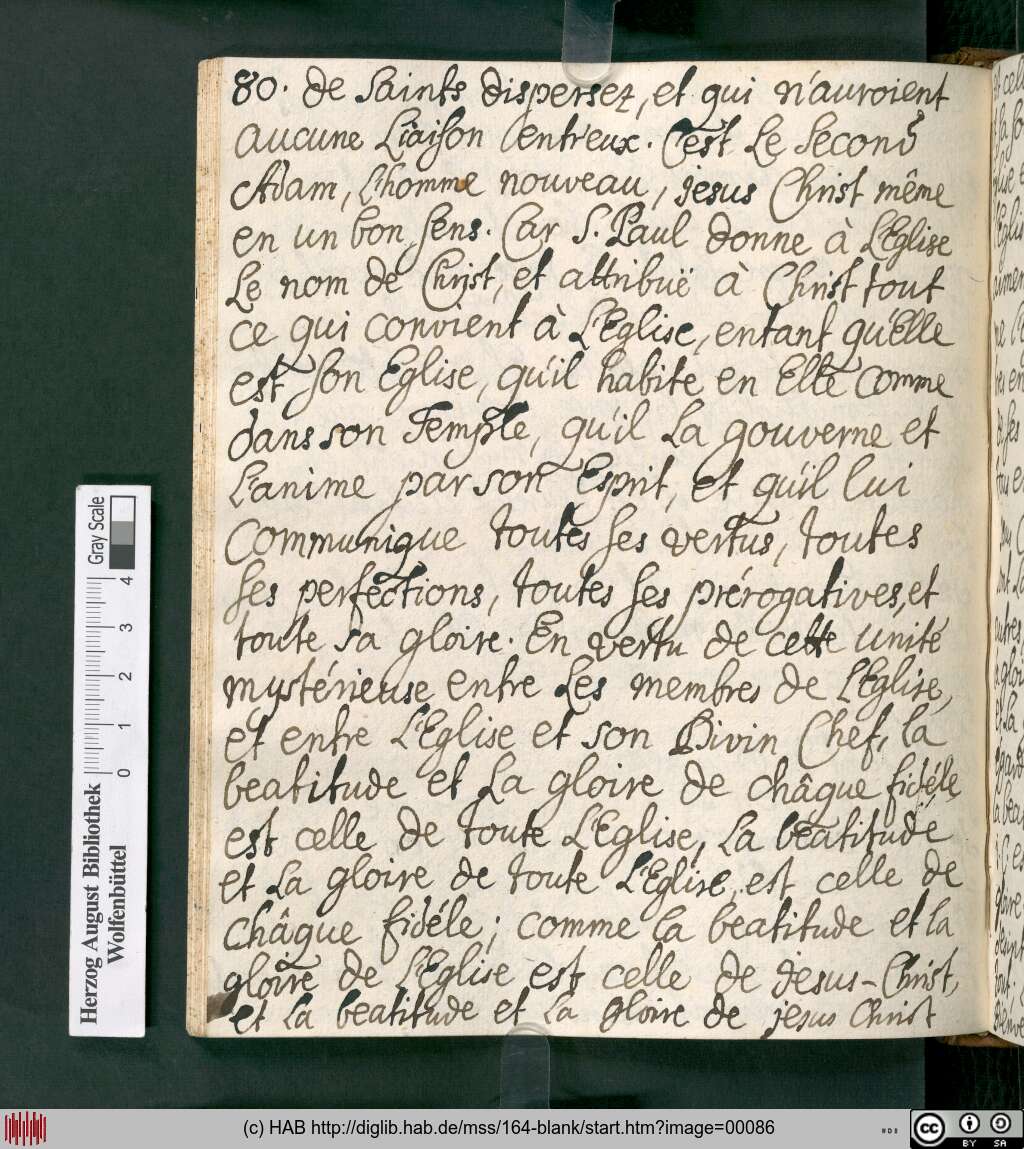 80. de Saints dispersez, et qui n'auroient
aucune Liaison entreux. C'est Le Second
Adam, L'homme nouveau, Jesus Christ même
en un bon sens. Car S. Paul donne à L'Eglise
Le nom de Christ, et attribuë à Christ tout
ce qui convient à L'Eglise, entant qu'Elle
est son Eglise, qu'il habite en Elle comme
dans son Temple, qu'il La gouverne et
L'anime par son Esprit, et qu'il lui
communique toutes ses vertus, toutes
ses perfections, toutes ses prérogatives, et
toute sa gloire. En vertu de cette unité
mystérieuse entre Les membres de L'Eglise,
et entre L'Eglise et son Divin Chef, la
beatitude et La gloire de châque fidéle
est celle de toute L'Eglise, La beatitude
et La gloire de toute L'Eglise, est celle de
châque fidéle; comme la beatitude et la
gloire de L'Eglise est celle de Jesus-Christ,
et La beatitude et La gloire de jesus Christ
Gray Scale
4
3
2
1
0
Herzog August Bibliothek
Wolfenbüttel
(c) HAB http://diglib.hab.de/mss/164-blank/start.htm?image=00086
cc
BY SA